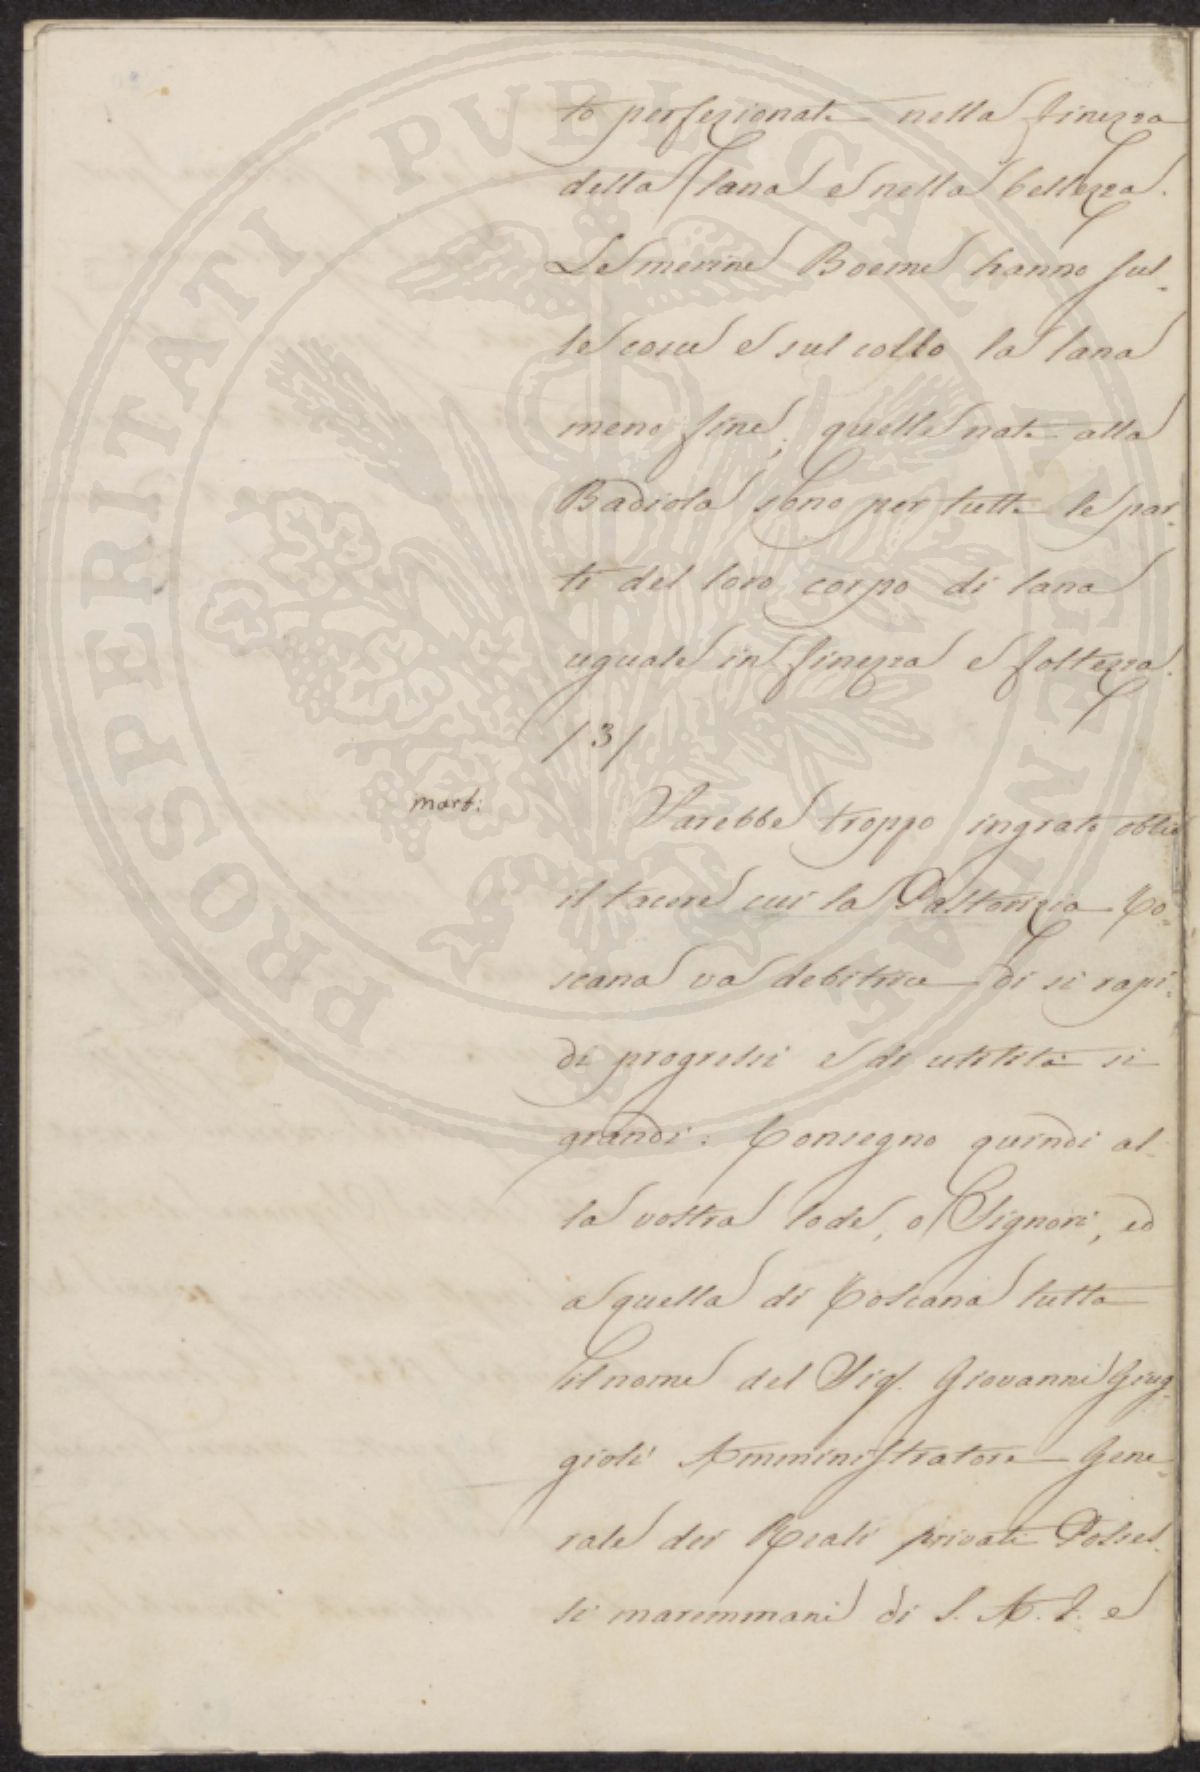 to perfezionate nella finezza
della lana e nella bellezza.
Le merine Boeme hanno sul-
le coscie e sul collo la lana
meno fine; quelle nate alla
Badiola sono per tutte le par-
ti del loro corpo di lana
uguale in finezza e foltezza.
/3/
mart:
Sarebbe troppo ingrato oblio
il tacere cui la Pastorizia To-
scana va debitrice di si rapi-
di progressi e di utilità si
grandi. Consegno quindi al-
la vostra lode, o Signori, ed
a quella di Toscana tutta
il nome del Sig. Giovanni Giug-
gioli Amministratore Gene-
rale dei Reali privati Posses-
si maremmani di S. A. I. e
PROSPERITATI PVBLICAE AVGENDAE